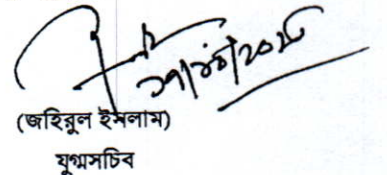 (জহিরুল ইসলাম)
যুগ্মসচিব